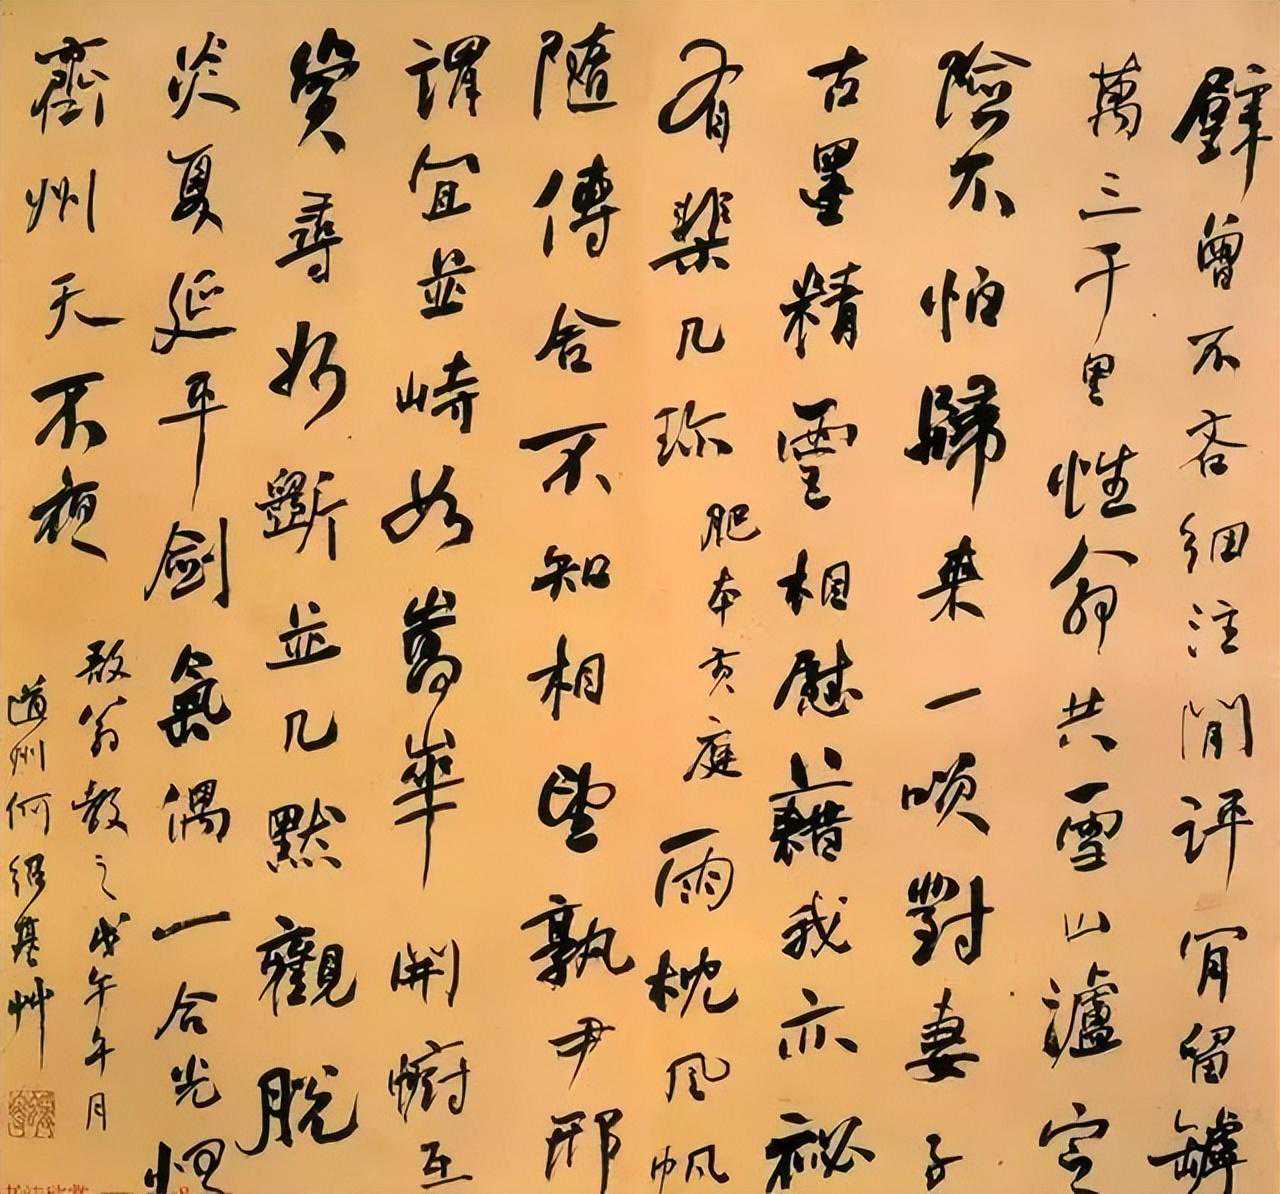 璧曾不吝細注閒評肎留罅
萬三千里性命共雪山瀘定
險不怕歸來一喚對妻子
古墨精靈相慰藉我亦祕
有棐几珎肥本黃庭雨枕風帆
隨傳舍不知相望孰尹邢
謂宜並峙如嵩華開幮互
賞尋如斷並几默觀脫
炎夏延平劍氣偶一合光怪
齊州天不夜
敔翁教之戊午午月
道州何紹基艸